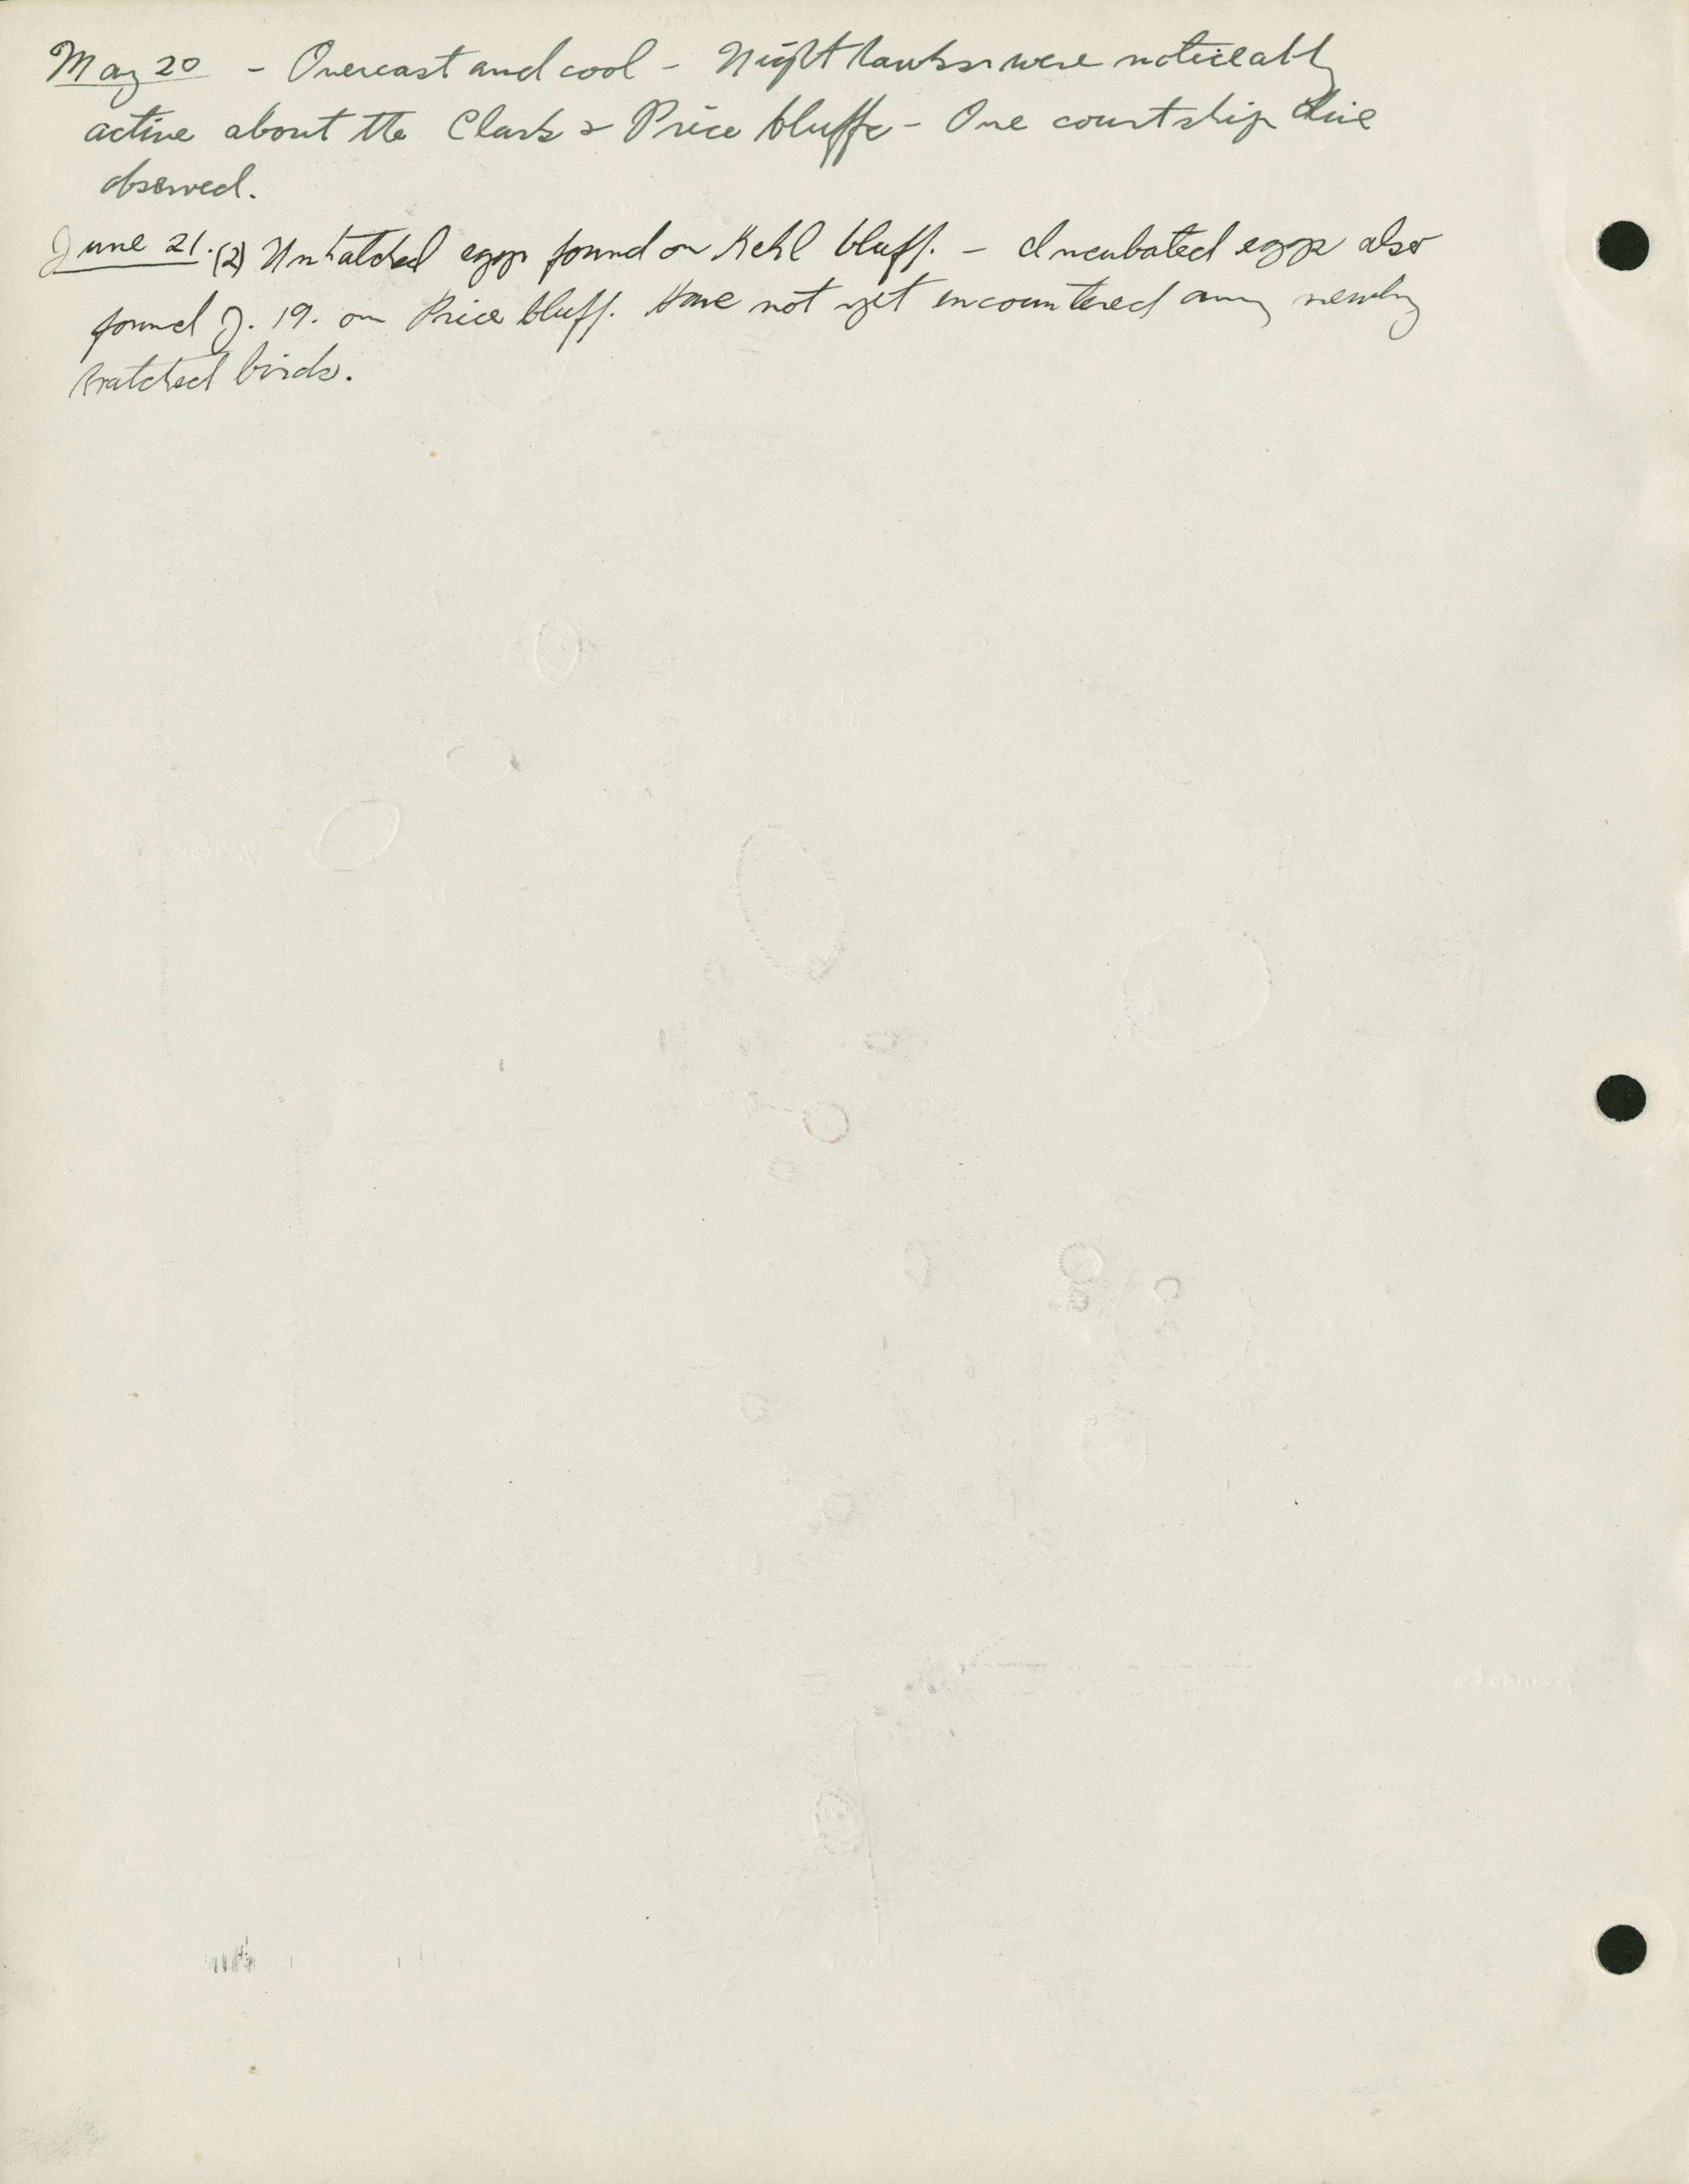 May 20 - Overcast and cool - Nighthawks were noticeably
active about the Clark & Price bluffs - One courtship dive
observed.
June 21. (2) Unhatched eggs found on Kehl bluff. - Incubated eggs also
found J. 19. on Price bluff. Have not yet encountered any newly
hatched birds.